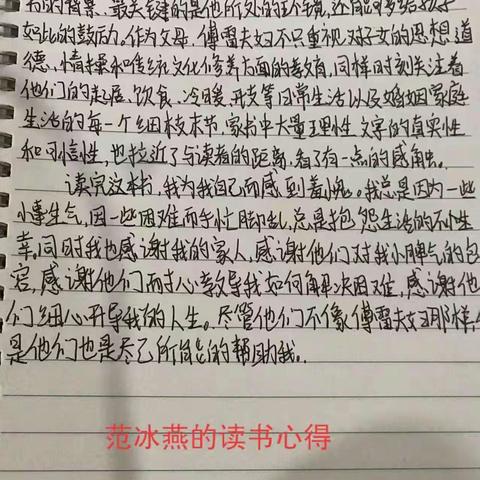 如此的鼓励。作为父母,傅雷夫妇不只重视对子女的思想道
德、情操和传统文化修养方面的教育,同样时刻关注着
他们的起居、饮食、冷暖、开支等日常生活以及婚姻家庭
生活的每一个细枝末节,家书中大量理性文字的真实性
和可信性,也拉近了与读者的距离,看了有一点的感触。
读完这本书,我为我自己而感到羞愧。我总是因为一些
小事生气,因一些困难而手忙脚乱,总是抱怨生活的不幸
幸。同时我也感谢我的家人,感谢他们对我小脾气的包
容,感谢他们耐心教导我如何解决困难,感谢他
们细心开导我的人生。尽管他们不像傅雷夫妇那样,
是他们也是尽己所能的帮助我。
范冰燕的读书心得